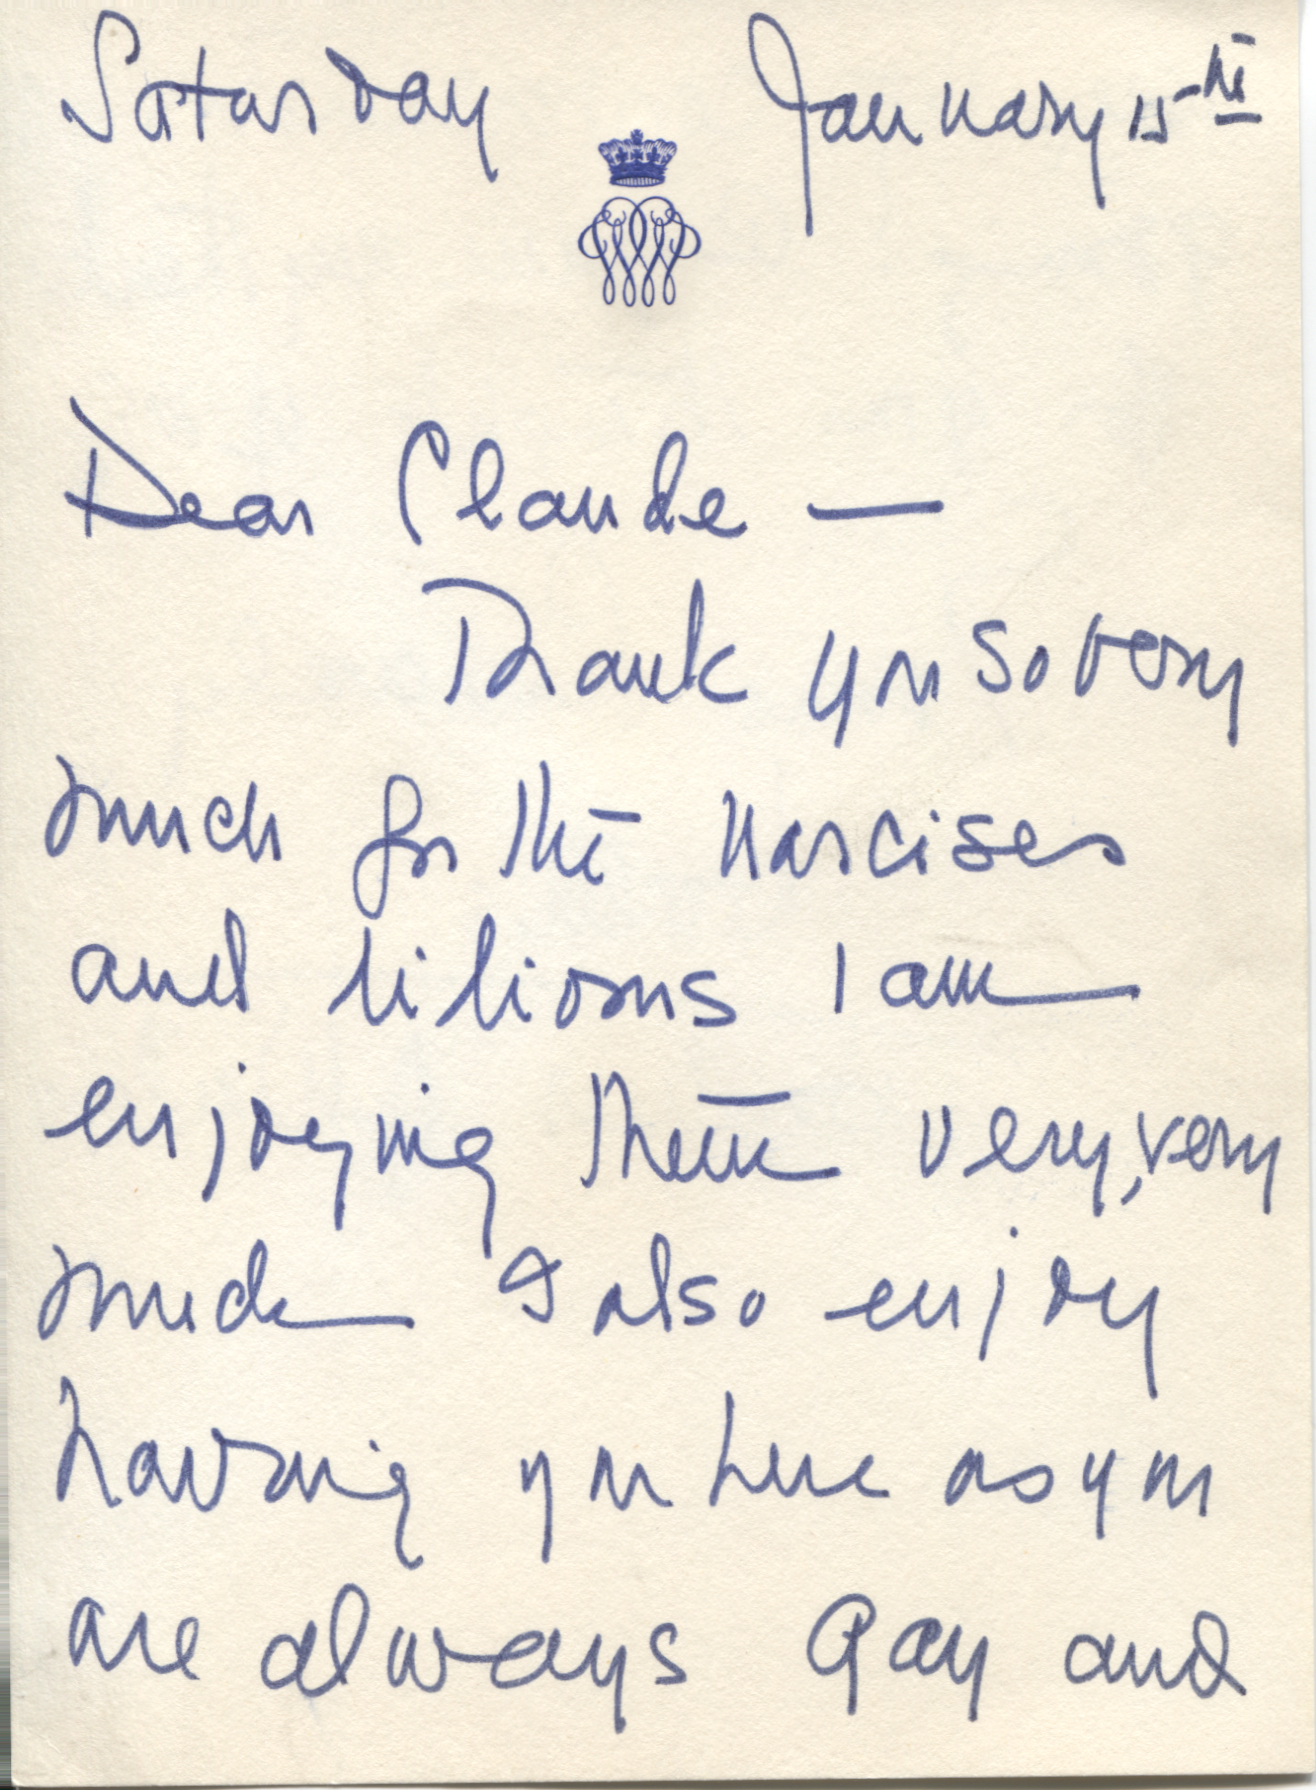 Saturday January 15th
Dear Claude —
Thank you so very
much for the narcises
and lilioms I am
enjoying them very, very
much I also enjoy
having you here as you
are always gay and